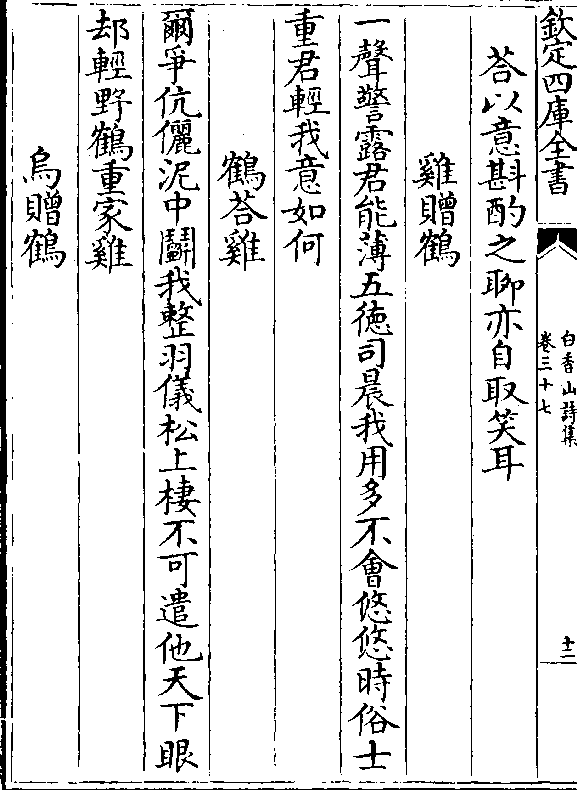 欽定四庫全書
白香山詩集
卷三十七
十二
荅以意斟酌之聊亦自取笑耳
雞贈鶴
一聲警露君能薄五德司晨我用多不會悠悠時俗士
重君輕我意如何
鶴荅雞
爾爭伉儷泥中鬭我整羽儀松上棲不可遣他天下眼
却輕野鶴重家雞
烏贈鶴